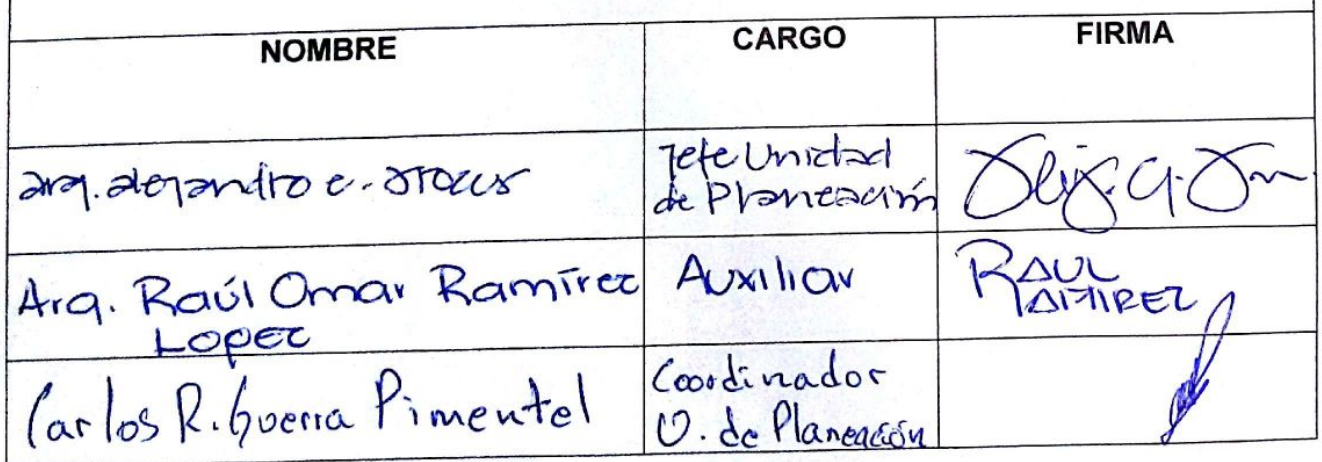 NOMBRE CARGO FIRMA
arq. alejandro e.
Jefe Unidad
de Planeación
Arq. Raúl Omar Ramírez
Lopez
Auxiliar
RAUL
RAMIREZ
Carlos R. Guerra Pimentel
Coordinador
U. de Planeación